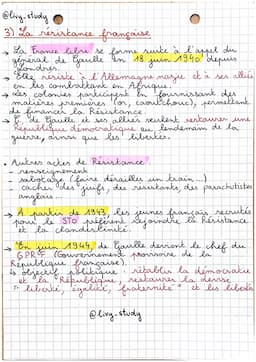 @livy.study
3) La résistance française
→ La France libre se forme suite à l'appel du
général de Gaulle en 18 juin 1940 depuis
Londres.
→ Elle résiste à l'Allemagne nazie et à ses alliés
en les combattant en Afrique.
→ Les colonies participent en fournissant des
matières premières (or, caoutchouc), permettant
de financer la Résistance.
→ de Gaulle et ses alliés veulent restaurer une
République démocratique au lendemain de la
guerre, ainsi que les libertés.
• Autres actes de Résistance
- renseignement
- sabotage (faire dérailler un train...)
- cacher des juifs, des résistants, des parachutistes
anglais...
→ A partir de 1943, les jeunes français recrutés
pour le STO préfèrent rejoindre la Résistance
et la clandestinité.
→ En juin 1944, de Gaulle devient le chef du
GPRF (Gouvernement provisoire de la
République française).
↳ objectif politique : rétablir la démocratie
et la République, restaurer la devise
"liberté, égalité, fraternité" et les libertés
@livy.study